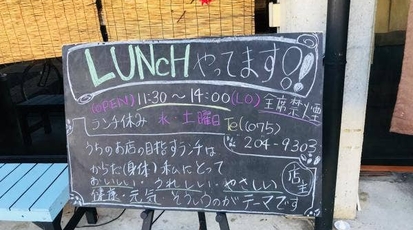 LUNCHやってます!!
(OPEN) 11:30〜14:00(LO) 全席禁煙
ランチ休み 水・土曜日 Tel(075)
204-9303
うちのお店の目指すランチは
からだ(身体)ホムにとって
おいしい・うれしい・やさしい
健康・元気・そういうのがテーマです
店主